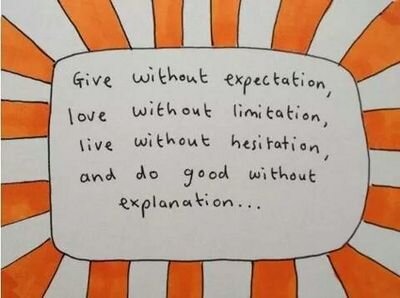 Give without expectation,
love without limitation,
live without hesitation,
and do good without
explanation...